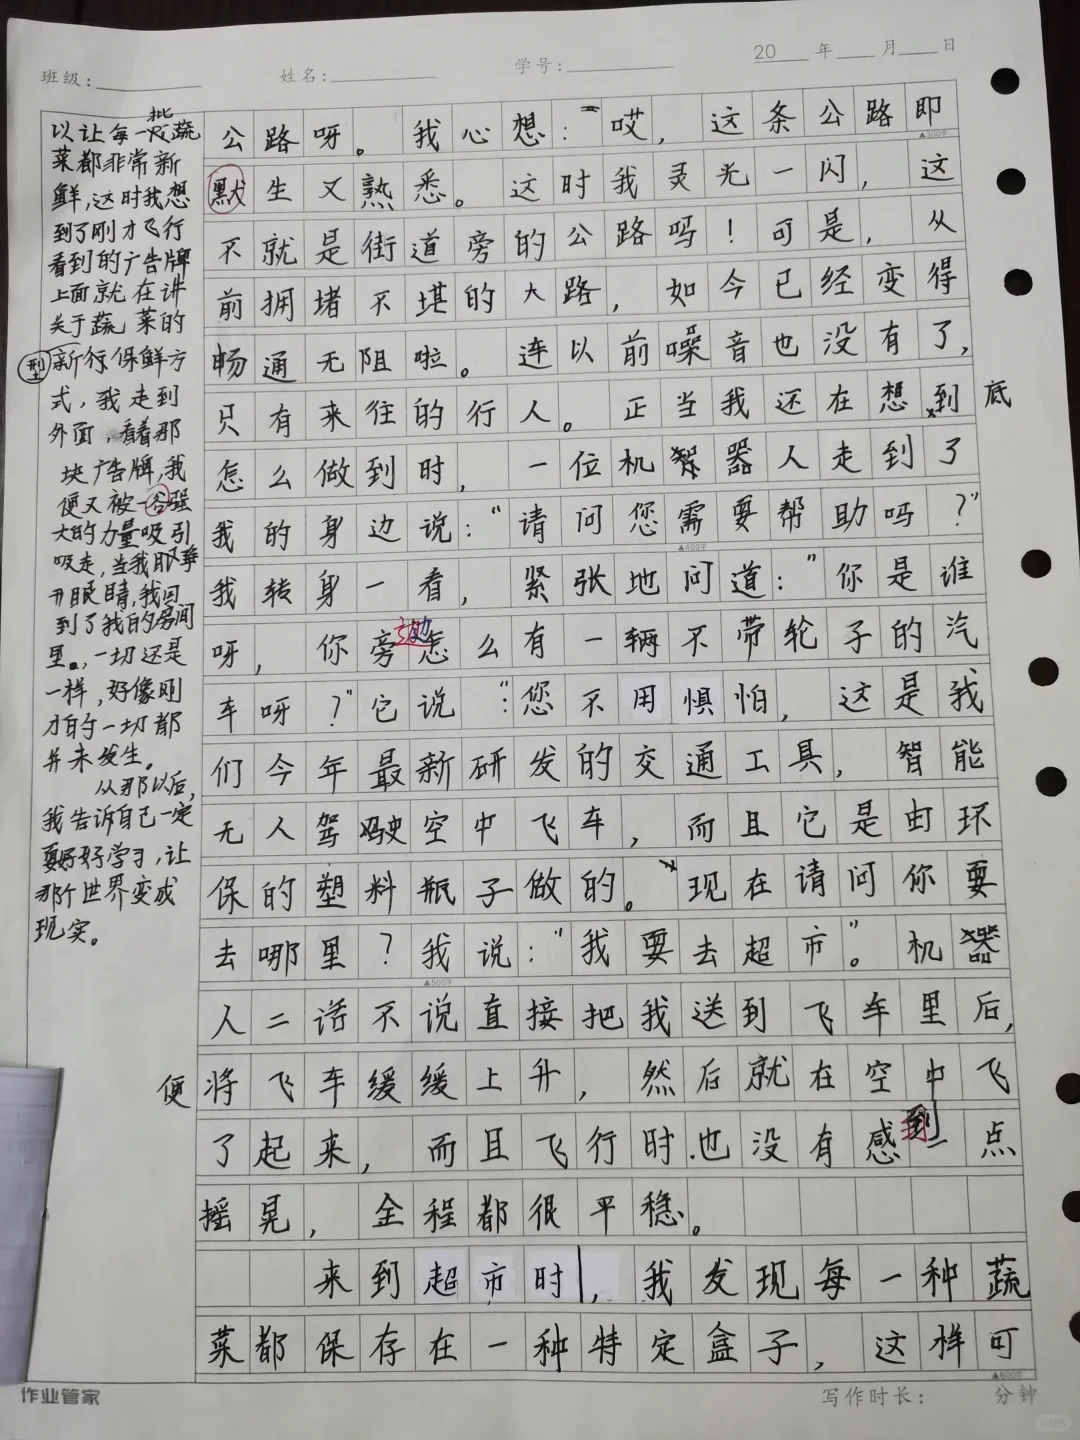 班级: 姓名: 学号: 20 年 月 日
公路呀。我心想：“哎，这条公路即
▲300字
默生又熟悉。这时我灵光一闪，这
不就是街道旁的公路吗！可是，从
前拥堵不堪的大路，如今已经变得
畅通无阻啦。连以前噪音也没有了，
只有来往的行人。正当我还在想到底
怎么做到时，一位机器人走到了
我的身边说：“请问您需要帮助吗？”
▲400字
我转身一看，紧张地问道：”你是谁
呀，你旁边怎么有一辆不带轮子的汽
车呀？”它说“：您不用惧怕，这是我
们今年最新研发的交通工具，智能
无人驾驶空中飞车，而且它是由环
保的塑料瓶子做的。”现在请问你要
去哪里？我说：“我要去超市”。机器
▲500字
人二话不说直接把我送到飞车里后，
便将飞车缓缓上升，然后就在空中飞
了起来，而且飞行时也没有感到一点
摇晃，全程都很平稳。
来到超市时，我发现每一种蔬
菜都保存在一种特定盒子，这样可
▲600字
以让每一批蔬
菜都非常新
鲜，这时我想
到了刚才飞行
看到的广告牌
上面就在讲
关于蔬菜的
新型保鲜方
式，我走到
外面，看着那
块广告牌，我
便又被一谷强
大的力量吸引
吸走，当我睁
开眼睛，我回
到了我的房间
里。，一切还是
一样，好像刚
才的一切都
并未发生。
从那以后，
我告诉自己一定
要好好学习，让
那个世界变成
现实。
作业管家 写作时长: 分钟